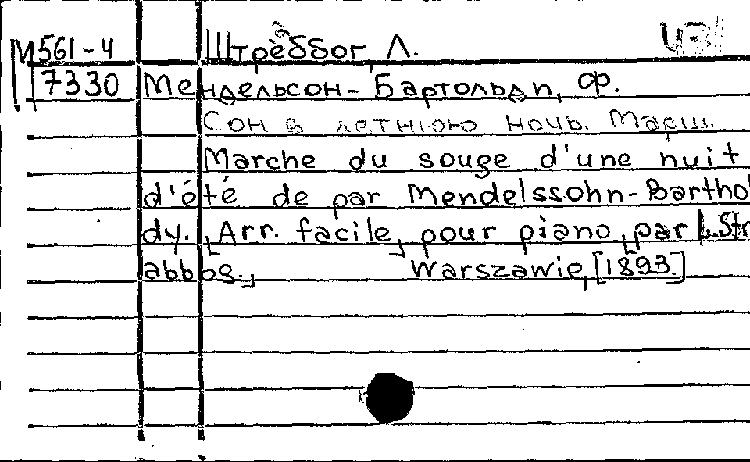 М561-4 Штреббог, Л.
7330 Мендельсон-Бартольди, Ф.
Сон в летнюю ночь. Марш.
Marche du souge d'une nuit
d'été de par Mendelssohn-Bartho
dy. [Arr. facile, pour piano, par L. Str
abbog.] Warszawie, [1893.]